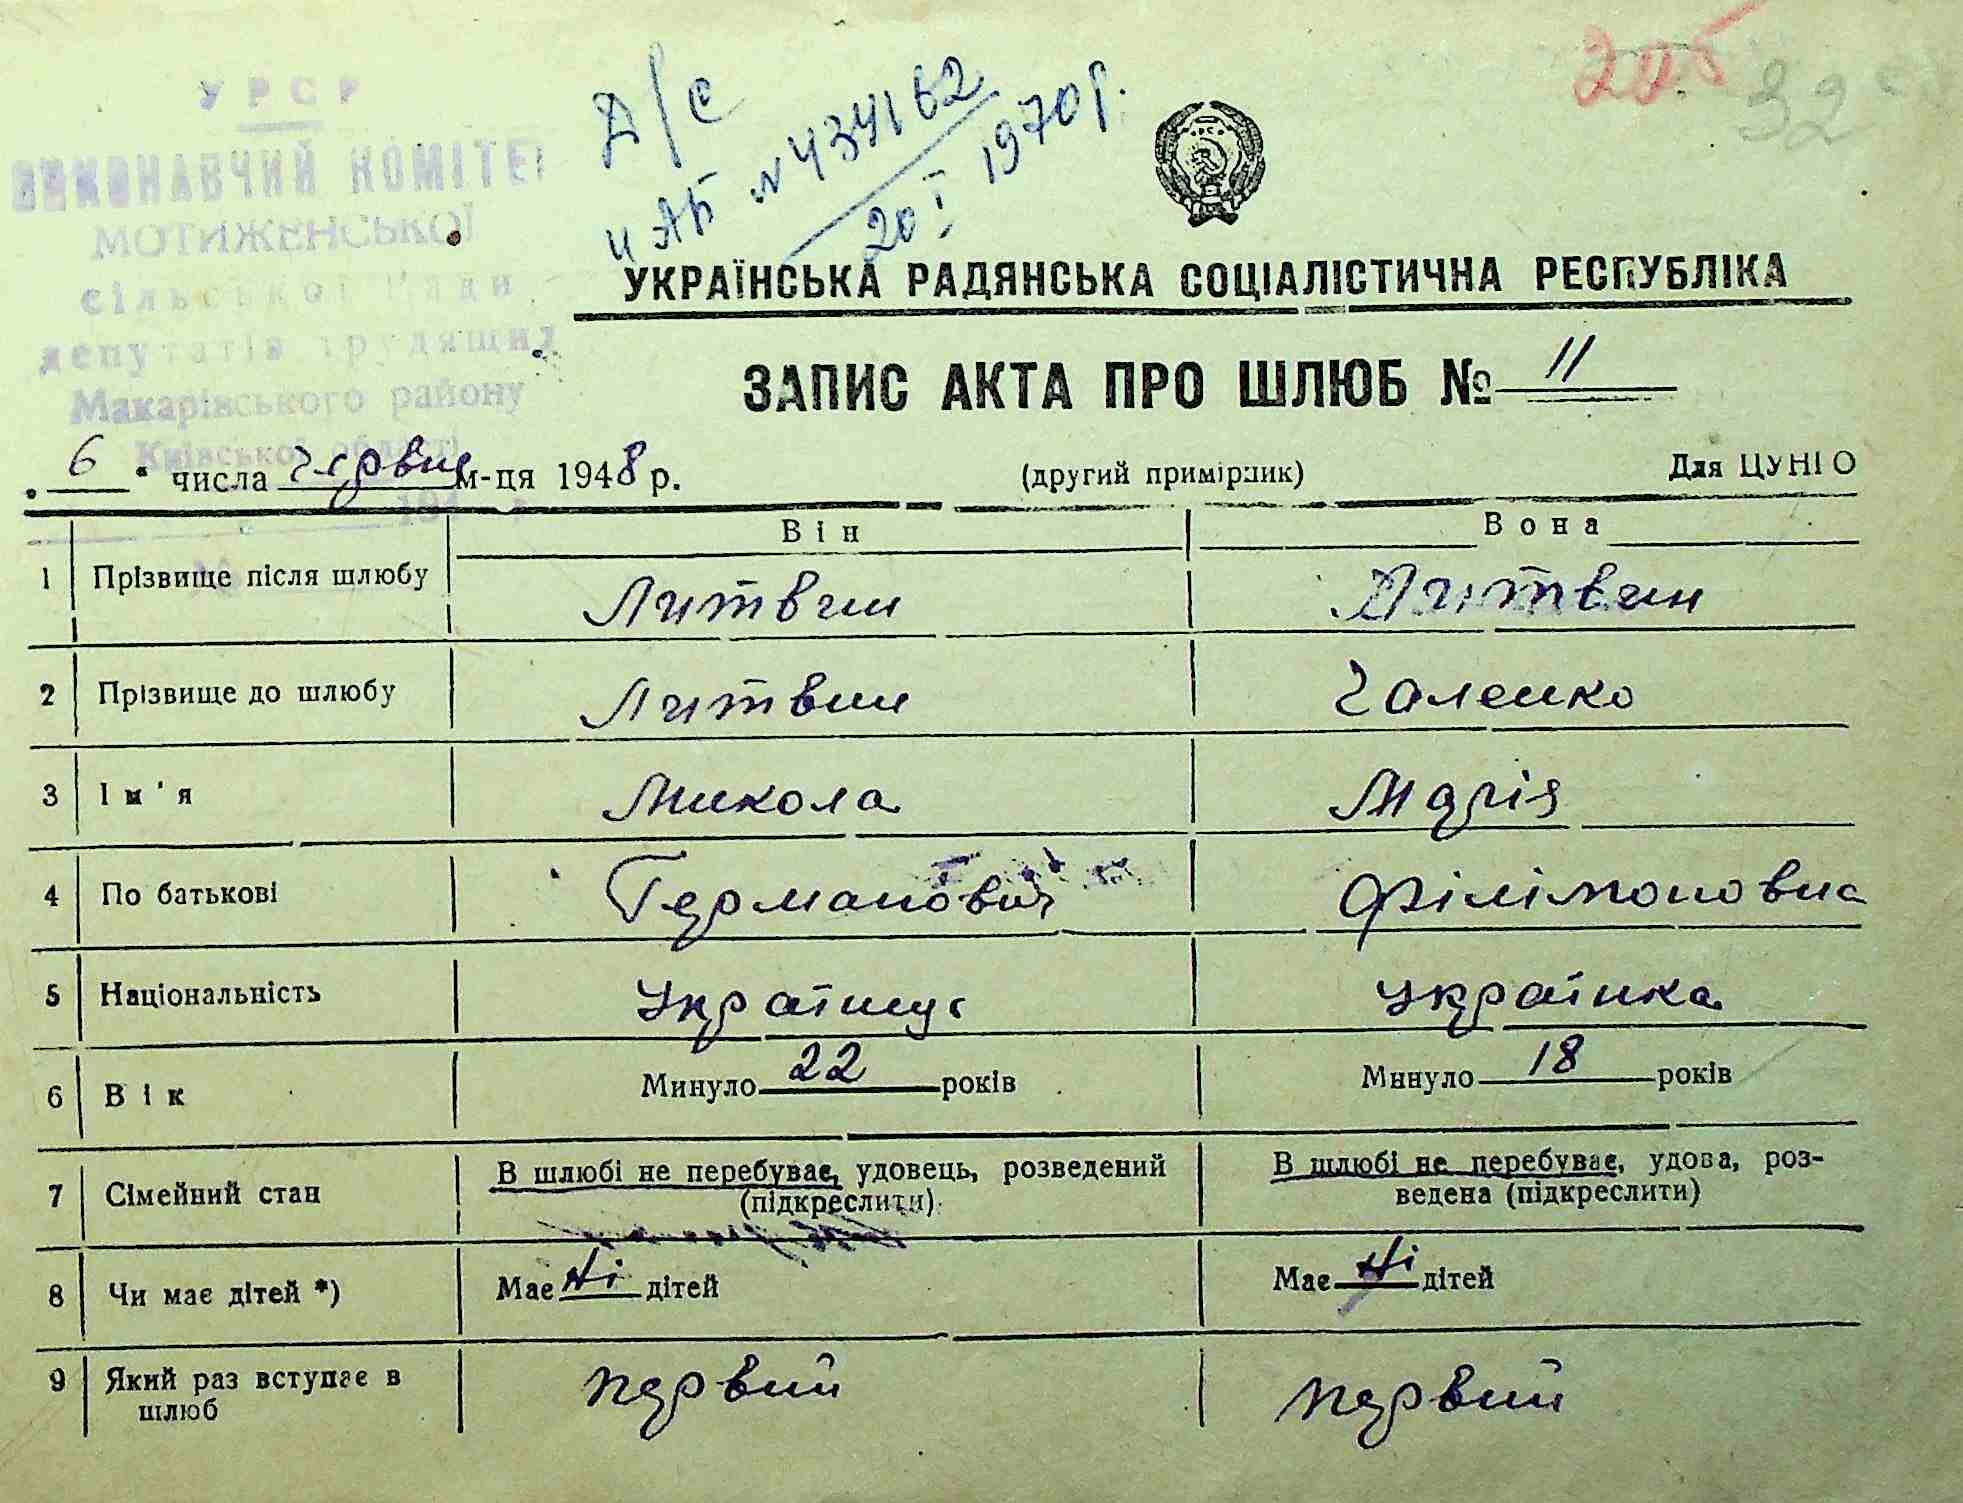 УРСР
ВИКОНАВЧИЙ КОМІТЕТ
МОТИЖЕНСЬКОЇ
сільської Ради
депутатів трудящих
Макарівського району
Київської області
194 р
№
Д/С
и АБ №434162
20 I 1970 г.
32
УКРАЇНСЬКА РАДЯНСЬКА СОЦІАЛІСТИЧНА РЕСПУБЛІКА
ЗАПИС АКТА ПРО ШЛЮБ № 11
„ 6 “ числа червня м-ця 1948 р. (другий примірник) Для ЦУНГО
Він Вона
1 Прізвище після шлюбу Литвин Литвин
2 Прізвище до шлюбу Литвин Галенко
3 Ім'я Микола Марія
4 По батькові Германович Філімоновна
5 Національність Українець Українка
6 Вік Минуло 22 років Минуло 18 років
7 Сімейний стан В шлюбі не перебуває, удовець, розведений (підкреслити) В шлюбі не перебуває, удова, роз-
ведена (підкреслити)
8 Чи має дітей *) Має Ні дітей Має Ні дітей
9 Який раз вступає в шлюб первий первий